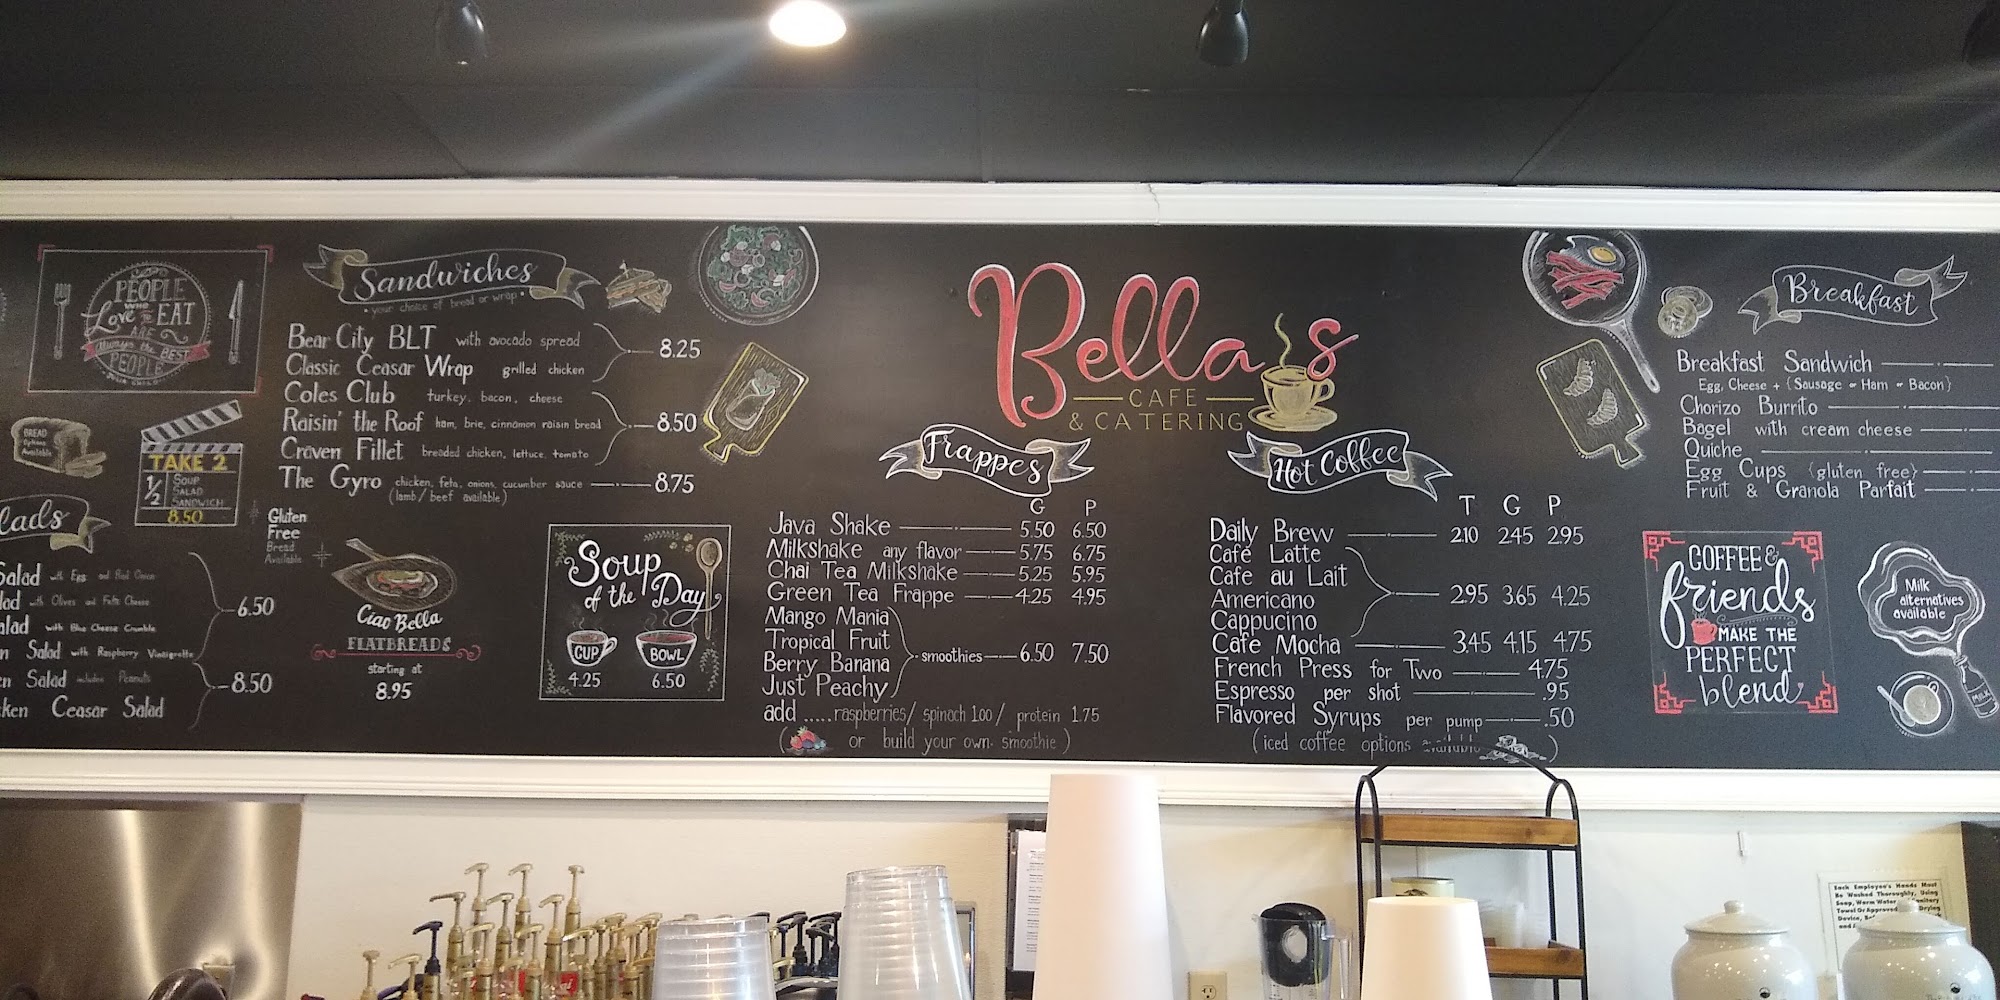 PEOPLE
WHO
Love TO EAT
ARE
Always the BEST
PEOPLE
JULIA CHILD
BREAD
Options
Available
TAKE 2
1/2 SOUP
SALAD
SANDWICH
8.50
Gluten
Free
Bread
Available
lads
Salad with Egg and Red Onion
lad with Olives and Feta Cheese
alad with Blue Cheese Crumble
6.50
n Salad with Raspberry Vinaigrette
en Salad includes Peanuts
ken Ceasar Salad
8.50
Sandwiches
your choice of bread or wrap
Bear City BLT with avocado spread
Classic Ceasar Wrap grilled chicken
8.25
Coles Club turkey, bacon, cheese
Raisin' the Roof ham, brie, cinnamon raisin bread
Craven Fillet breaded chicken, lettuce, tomato
8.50
The Gyro chicken, feta, onions, cucumber sauce 8.75
(lamb/beef available)
Ciao Bella
FLATBREADS
starting at
8.95
Soup
of the Day
CUP BOWL
4.25 6.50
Bella's
CAFE
& CATERING
Frappes
G P
Java Shake 5.50 6.50
Milkshake any flavor 5.75 6.75
Chai Tea Milkshake 5.25 5.95
Green Tea Frappe 4.25 4.95
Mango Mania
Tropical Fruit
Berry Banana
Just Peachy
smoothies 6.50 7.50
add .....raspberries/ spinach 1.00/ protein 1.75
( or build your own smoothie )
Hot Coffee
T G P
Daily Brew 2.10 2.45 2.95
Cafe Latte
Cafe au Lait
Americano
Cappucino
2.95 3.65 4.25
Cafe Mocha 3.45 4.15 4.75
French Press for Two 4.75
Espresso per shot .95
Flavored Syrups per pump .50
(iced coffee options available )
Breakfast
Breakfast Sandwich
Egg, Cheese + {Sausage or Ham or Bacon}
Chorizo Burrito
Bagel with cream cheese
Quiche
Egg Cups {gluten free}
Fruit & Granola Parfait
COFFEE &
friends
MAKE THE
PERFECT
blend
Milk
alternatives
available
MILK
Each Employee's Hands Must
Be Washed Thoroughly, Using
Soap, Warm Water
Towel Or Approved Drying
Device,